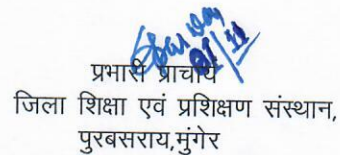 प्रभारी प्राचार्य
जिला शिक्षा एवं प्रशिक्षण संस्थान,
पुरबसराय,मुंगेर